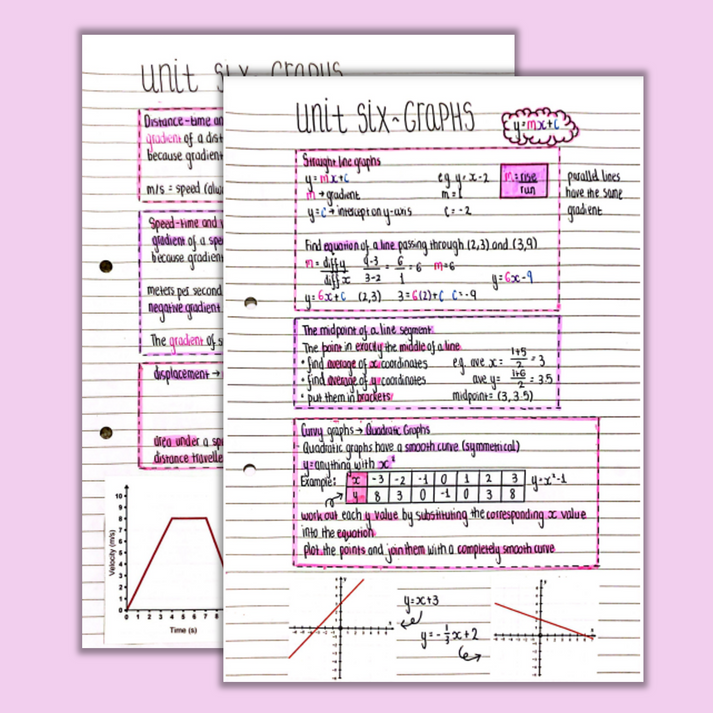 unit six graphs
Distance-time an
gradient of a dist
because gradient
m/s = speed (alw
Speed-time and v
gradient of a spe
because gradient
meters per second
negative gradient
The gradient of s
displacement →
area under a sp
distance travelle
10
9
8
7
6
5
4
3
2
1
0
Velocity (m/s)
0 1 2 3 4 5 6 7 8
Time (s)
unit six~GRAPHS
y=mx+c
Straight line graphs
y=mx+c
m → gradient
y=c → intercept on y-axis
e.g. y=x-2
m=1
c=-2
m=rise
run
parallel lines
have the same
gradient
Find equation of a line passing through (2,3) and (3,9)
m= diff y 9-3 = 6 = 6 m=6
diff x 3-2 1
y=6x+c (2,3) 3=6(2)+c c=-9
y=6x-9
The midpoint of a line segment
The point in exactly the middle of a line
• find average of x coordinates
• find average of y coordinates
• put them in brackets
e.g. ave x = 1+5/2 = 3
ave y = 1+6/2 = 3.5
midpoint = (3, 3.5)
Curvy graphs → Quadratic Graphs
• Quadratic graphs have a smooth curve (symmetrical)
y=anything with x²
Example:
x -3 -2 -1 0 1 2 3
y 8 3 0 -1 0 3 8
y=x²-1
work out each y value by substituting the corresponding x value
into the equation
plot the points and join them with a completely smooth curve
y=x+3
y=-1/3x+2